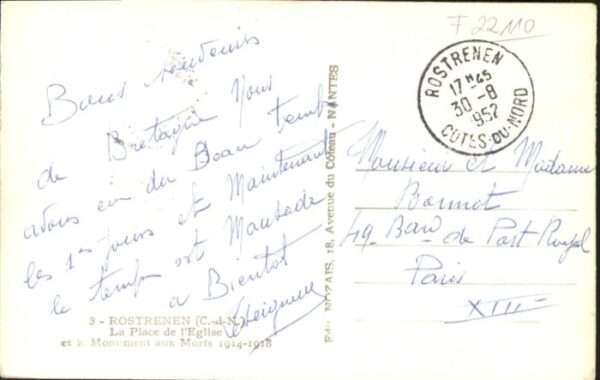 F 22110
Bons souvenirs
de Bretagne Nous
avons eu du Beau temps
les 1ers jours et Maintenant
le temps est Maussade
à Bientot
3 - ROSTRENEN (C.-d-N.)
La Place de l'Eglise
et le Monument aux Morts 1914-1918
Edit. NOZAIS, 18, Avenue du Côteau - NANTES
ROSTRENEN
17 H 45
30 - 8
1952
CÔTES-DU-NORD
Monsieur et Madame
Bonnot
49 Bard de Port Royal
Paris
XIII